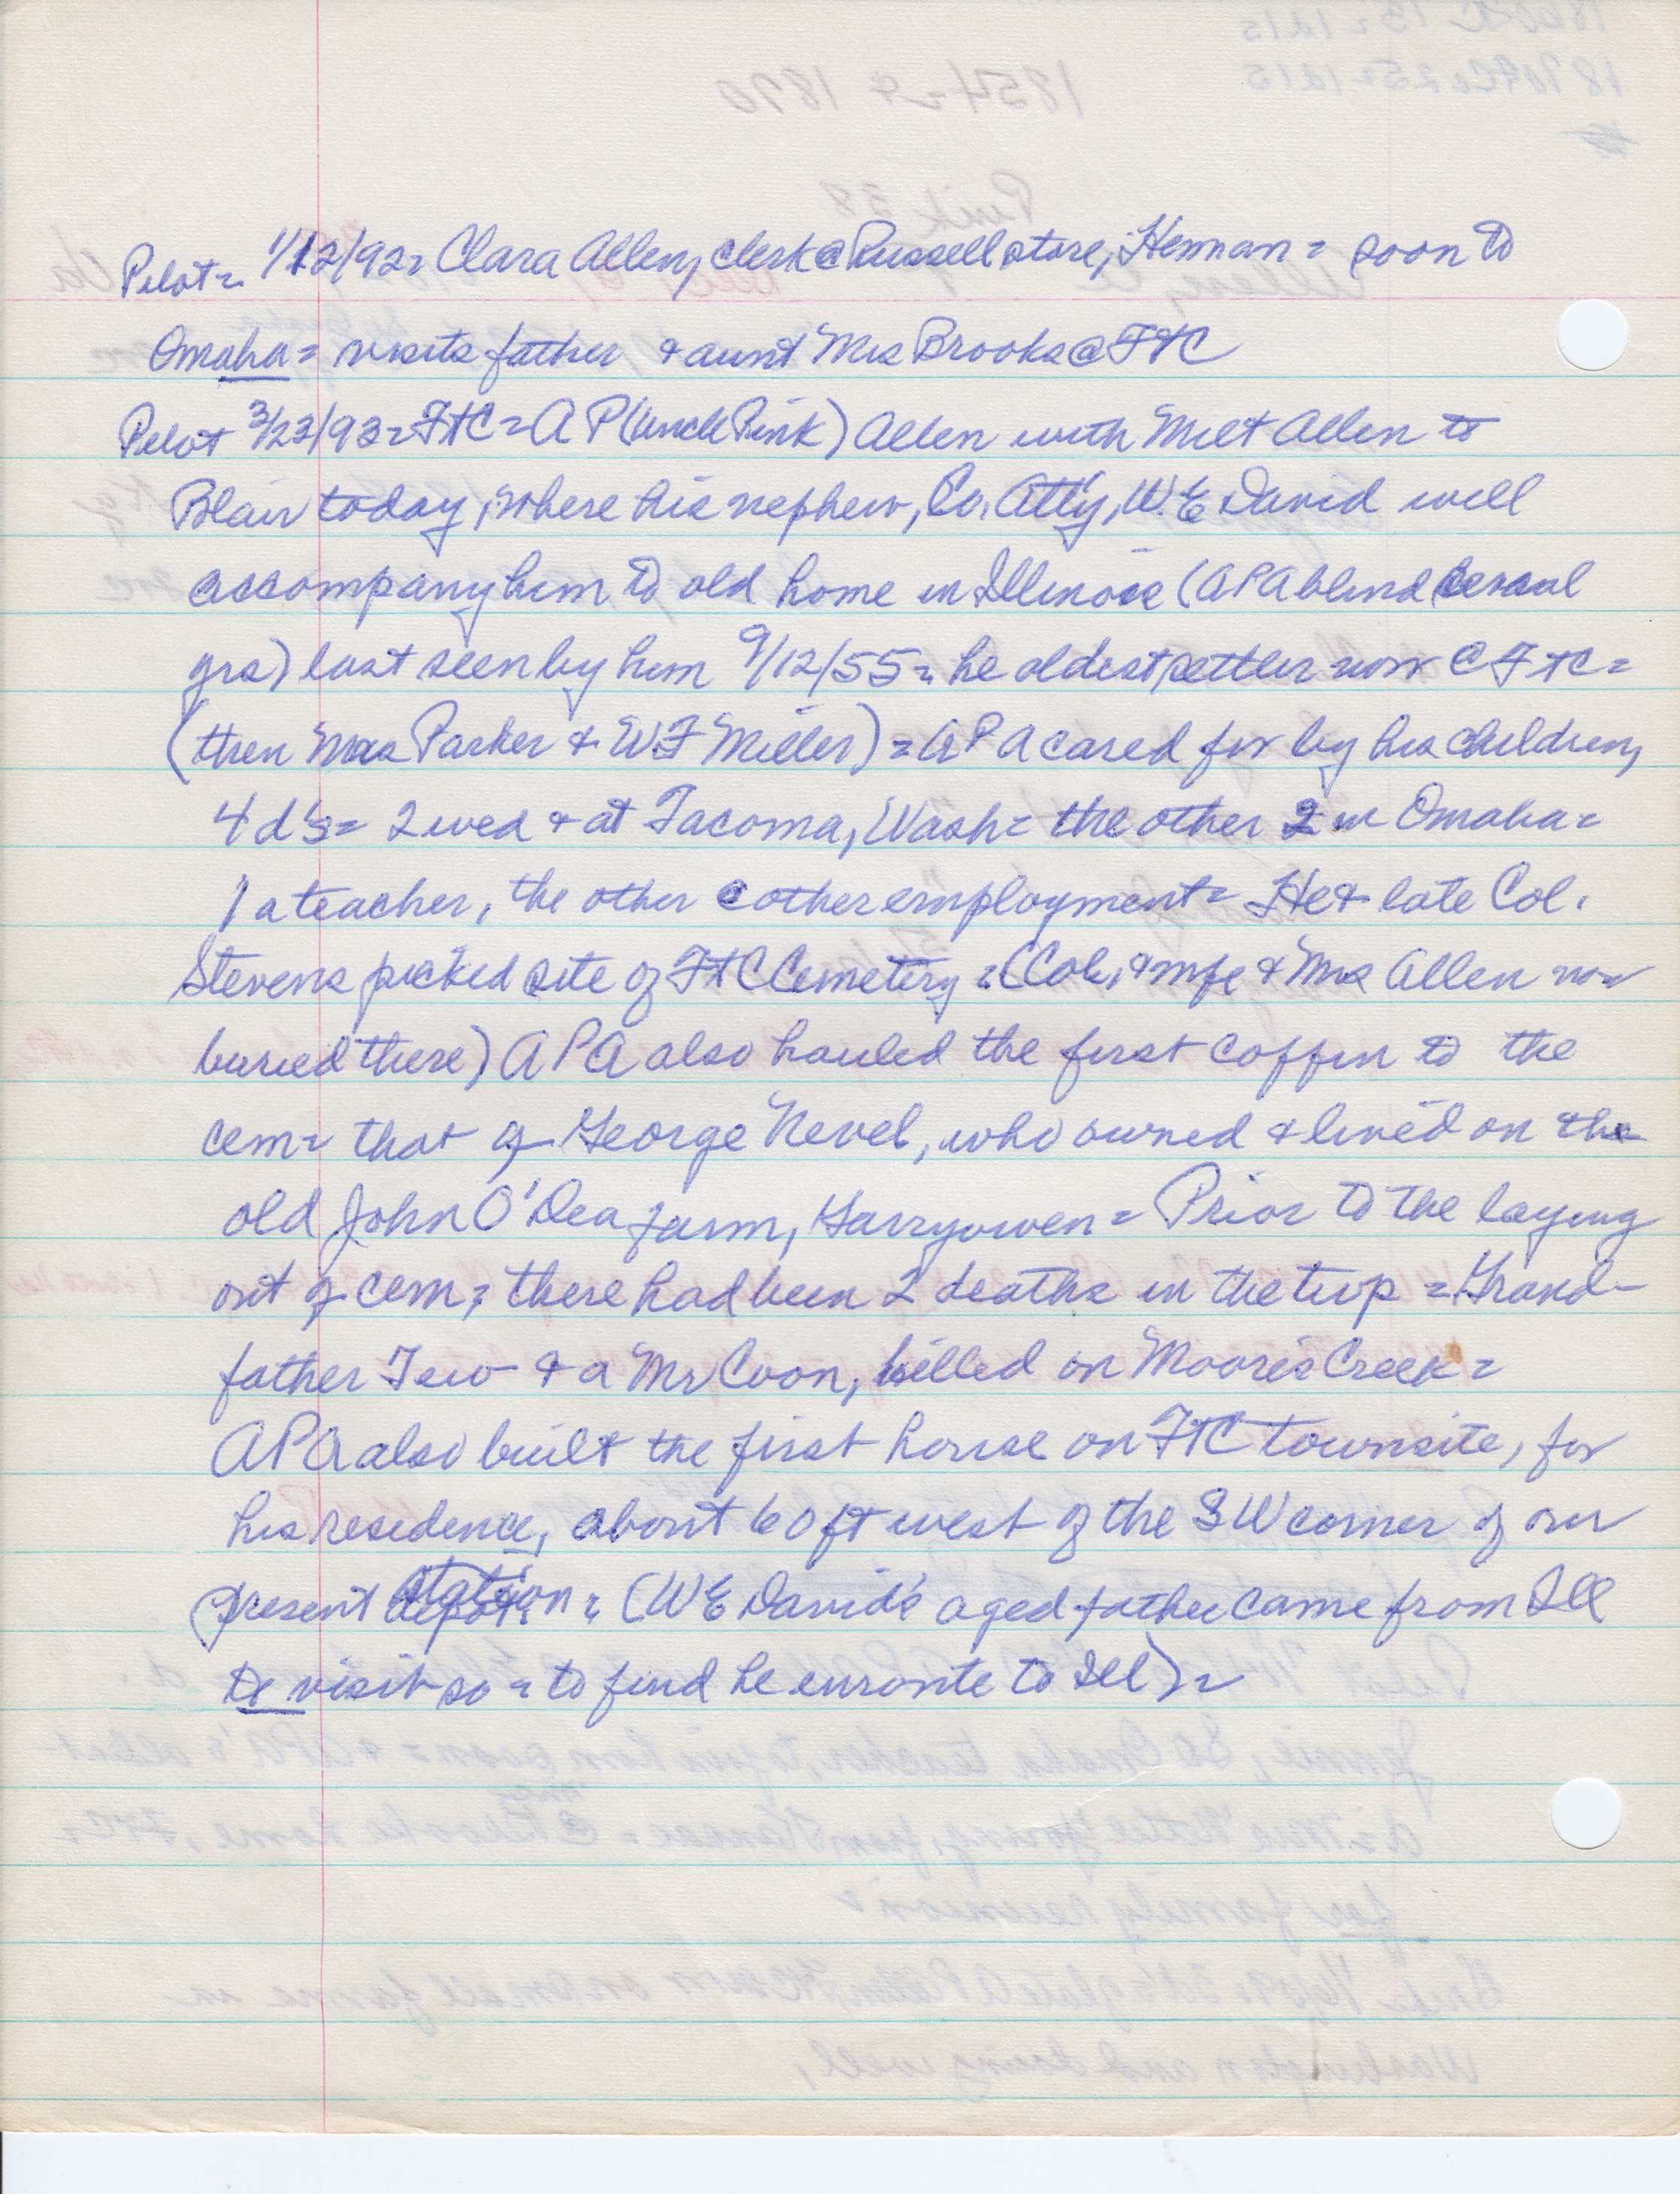 Pilot = 1/12/92 = Clara Allen, clerk @ Russell store, Herman = soon to
Omaha = visits father & aunt Mrs Brooks @ FtC
Pilot 3/23/93 = FtC = A P (Uncle Pink) Allen with Milt Allen to
Blair today, where his nephew, Co. Att'y, W.E David will
accompany him to old home in Illinois (APA blind several
yrs) last seen by him 9/12/55 = he oldest settler now @ FtC =
(then Mrs Parker & WF Miller) = APA cared for by his children,
4 d's = 2 wed & at Tacoma, Wash = the other 2 in Omaha =
1 a teacher, the other @ other employment = He & late Col.
Stevens picked site of FtC Cemetery = (Col. & wife & Mrs Allen now
buried there) APA also hauled the first coffin to the
cem = that of George Nevel, who owned & lived on the
old John O'Dea farm, Garryowen = Prior to the laying
out of cem, there had been 2 deaths in the twp = Grand-
father Tew & a Mr Coon, killed on Moore's Creek =
APA also built the first house on FtC townsite, for
his residence, about 60 ft west of the SW corner of our
present station = (WE David's aged father came from Ill
to visit so = to find he enroute to Ill) =